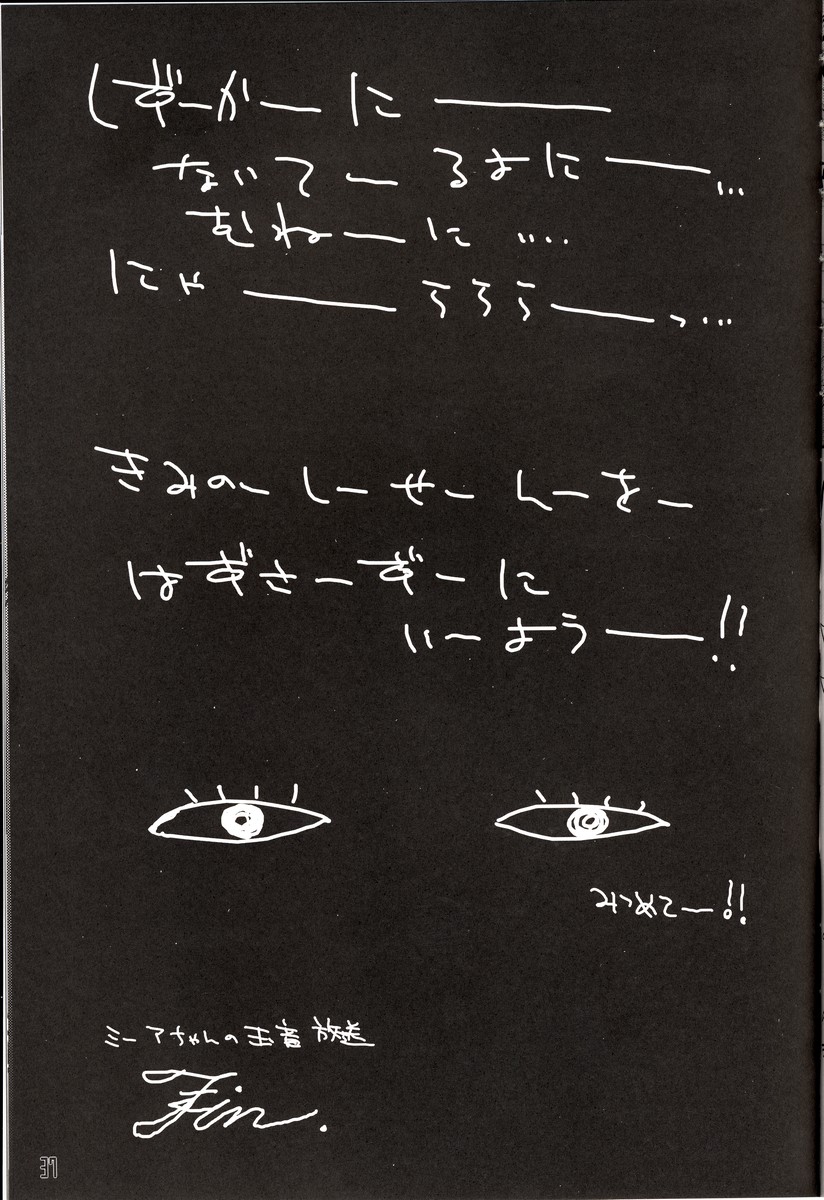 しずーがーにー
ないてーるよにー…
むねーに‥‥
にゃーーうううーっ…
きみのーしーせーんーをー
はずさーずーに
いーようー!!
みつめてー!!
ミーアちゃんの玉音放送
Fin.
37